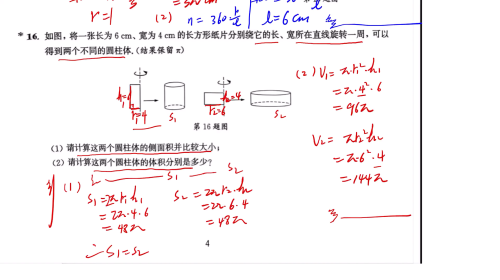 (2) n = 360 l = 6cm
* 16. 如图,将一张长为 6 cm、宽为 4 cm 的长方形纸片分别绕它的长、宽所在直线旋转一周,可以
得到两个不同的圆柱体.(结果保留 π)
h₁=6 r₁=4 S₁ h₂=4 r₂=6 S₂
第 16 题图
(1) 请计算这两个圆柱体的侧面积并比较大小;
(2) 请计算这两个圆柱体的体积分别是多少?
S₁ S₂
(1) S₁=2πr₁·h₁
=2π·4·6
=48π
S₂=2πr₂·h₂
=2π·6·4
=48π
∴S₁=S₂
(2) V₁=π·r₁²·h₁
=π·4²·6
=96π
V₂=πr₂²h₂
=π·6²·4
=144π
4